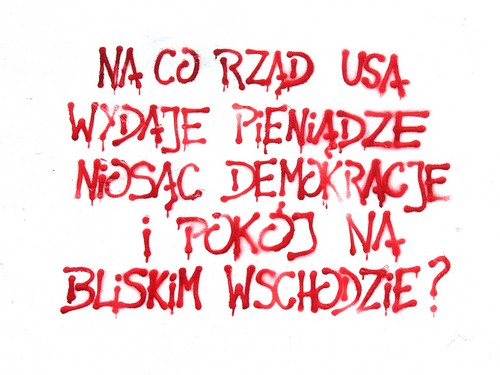 NA CO RZĄD USA
WYDAJE PIENIĄDZE
NIOSĄC DEMOKRACJE
i POKÓJ NA
BLISKIM WSCHODZIE?